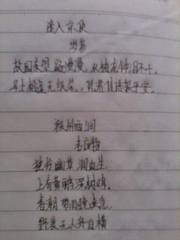 逢入京使
岑参
故园东望路漫漫，双袖龙钟泪不干。
马上相逢无纸笔，凭君传语报平安。
滁州西涧
韦应物
独怜幽草涧边生
上有黄鹂深树鸣。
春潮带雨晚来急
野渡无人舟自横